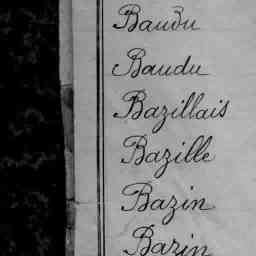 Baudu
Baudu
Bazillais
Bazille
Bazin
Bazin